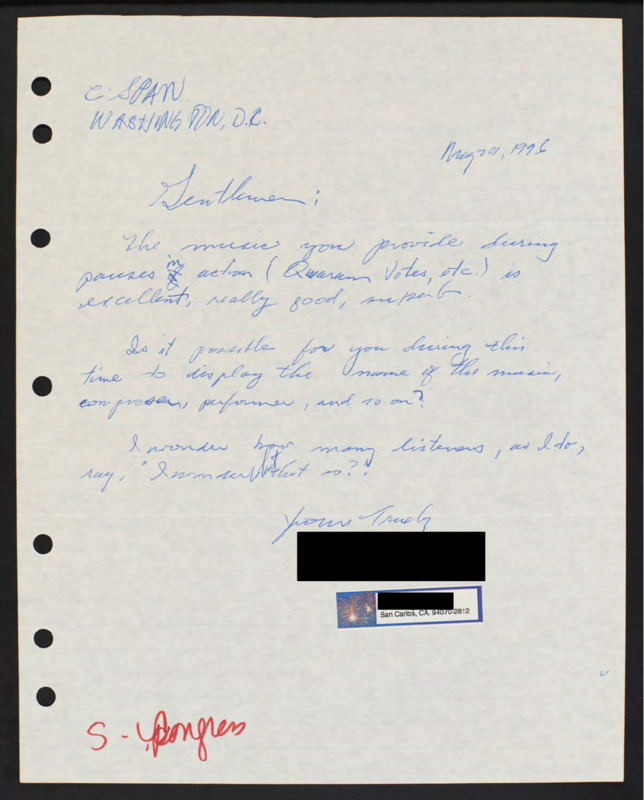 C-SPAN
WASHINGTON, D.C.
1996
Gentlemen:
The music you provide during
pauses in action (Quorum Votes, etc.) is
excellent; really good, superb.
Is it possible for you during this
time to display the name of the music,
composer, performer, and so on?
I wonder how many listeners, as I do,
say, "I wonder what that is?"
Yours Truly
San Carlos, CA. 94070-2812
S - Congress